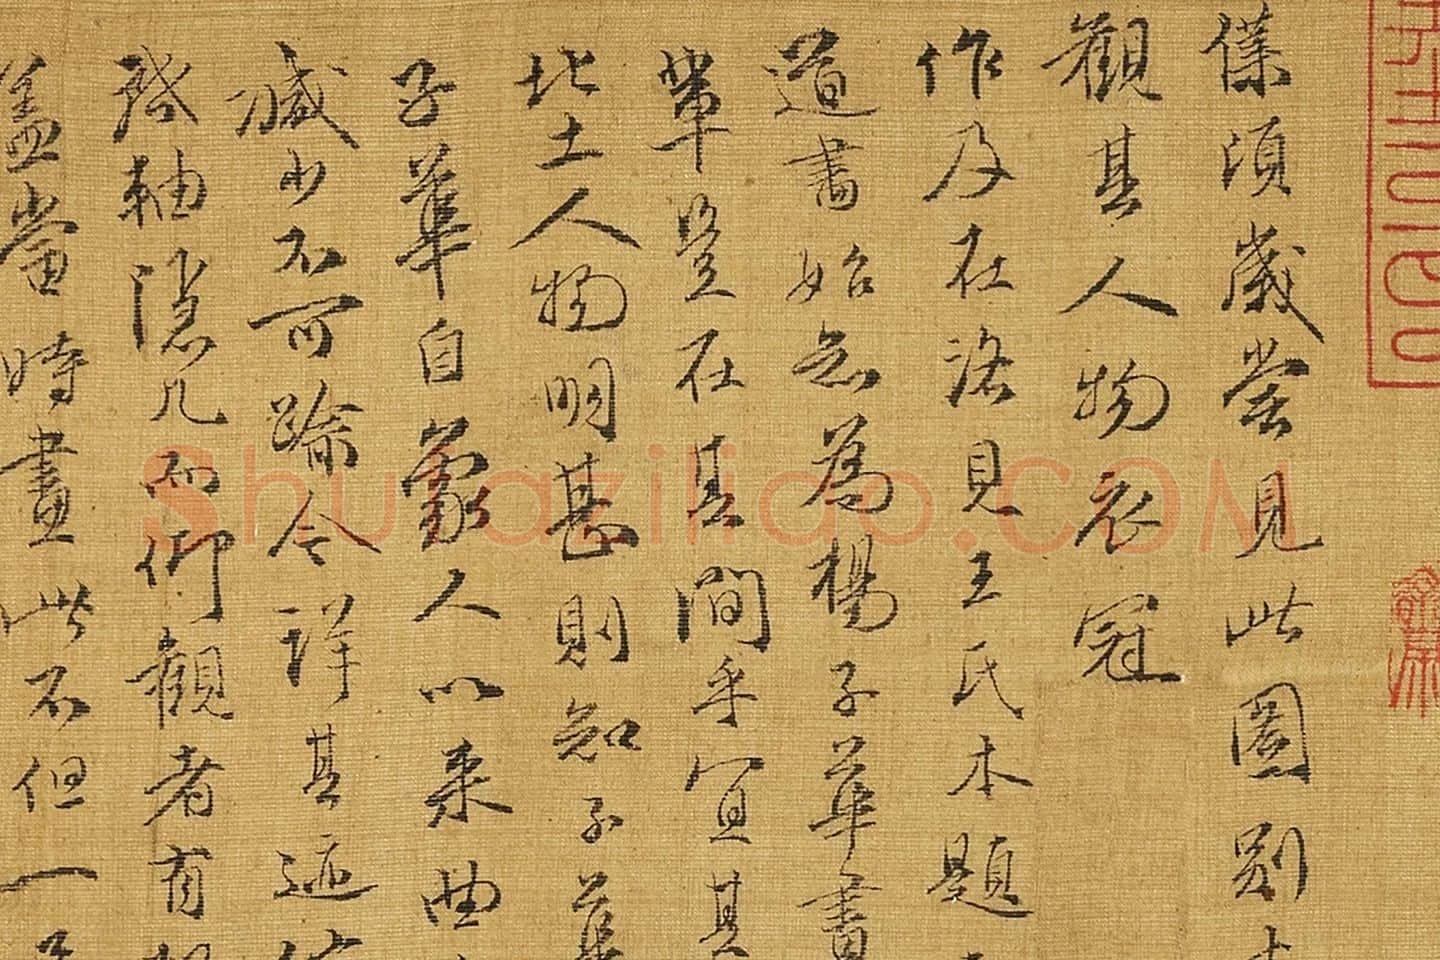 僕頃歲嘗見此圖別本
觀其人物衣冠
作及在洛見王氏本題
道書始知為楊子華書
輩豈在其間乎宜其
北土人物明甚則知子華
子華自象人以来曲
減少不可踰今詳其迹
啓軸隱几而仰觀者有
蓋當時畫此不但一
Shufaziliao.COM